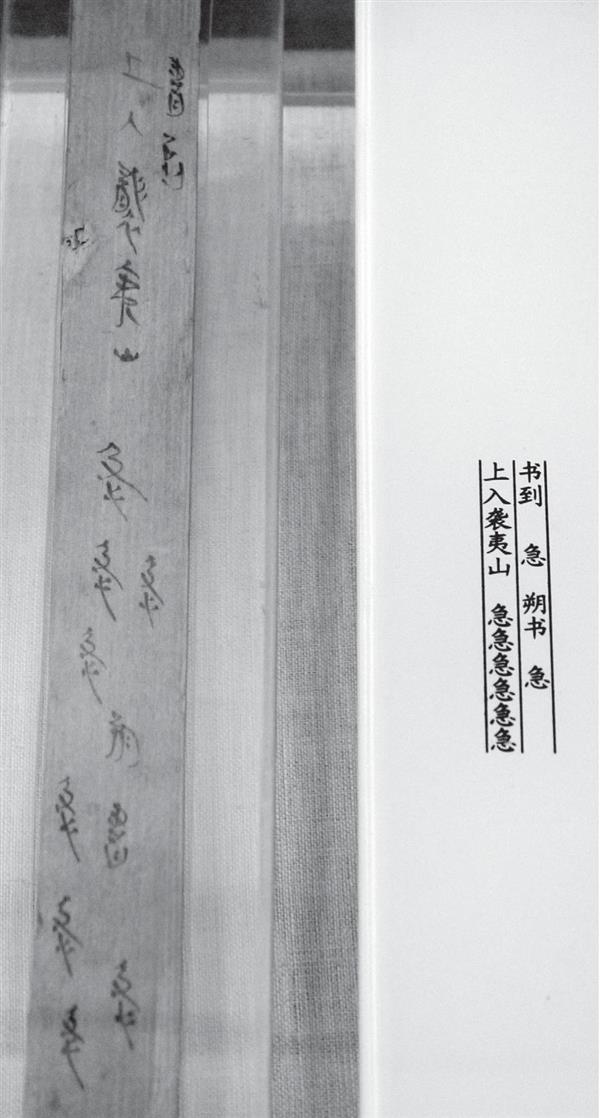 书到 急 朔书 急
上入袭夷山 急急急急急急